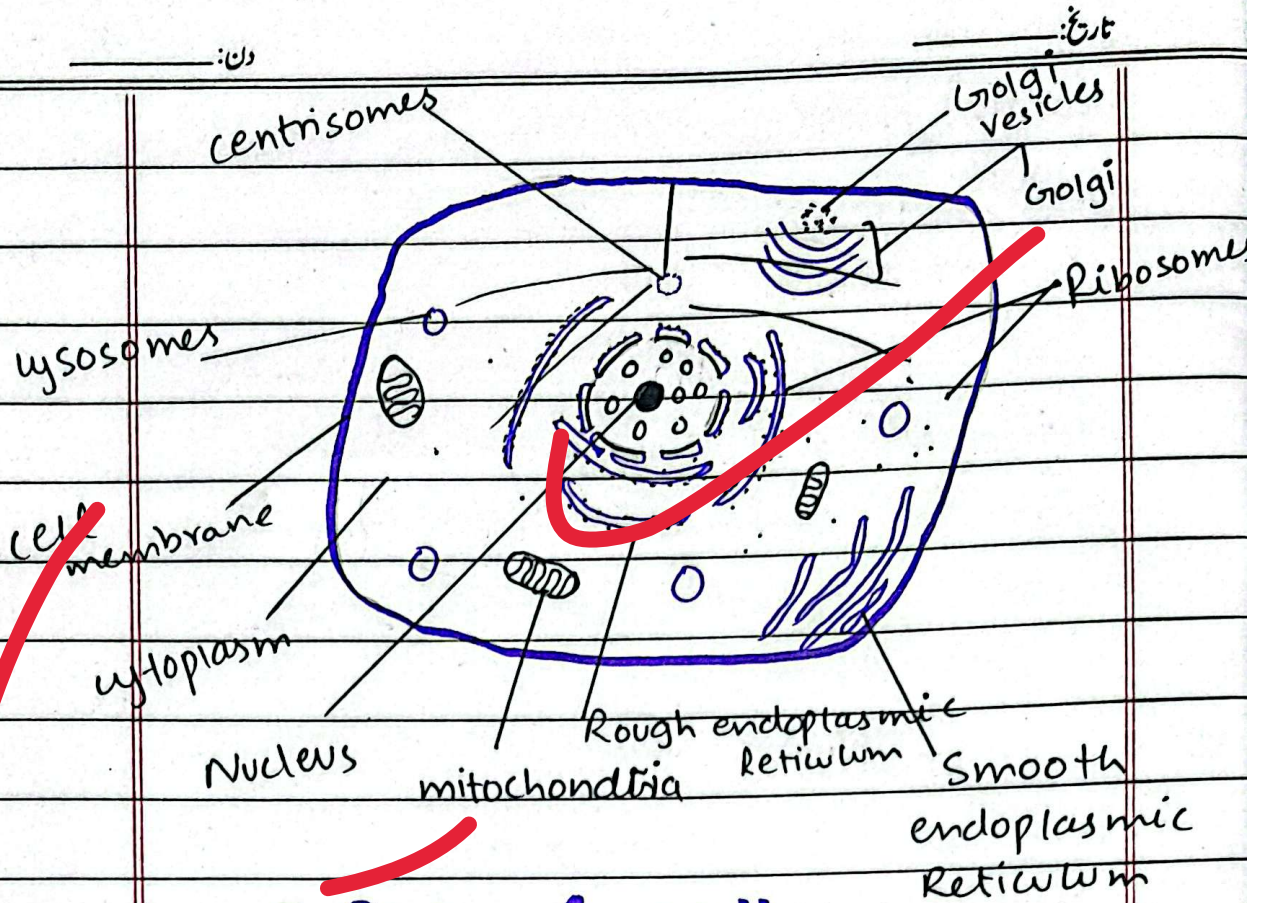 دن:
تاریخ:
centrisomes
Golgi
vesicles
Golgi
Ribosomes
lysosomes
cell
membrane
cytoplasm
Nucleus
mitochondria
Rough endoplasmic
Reticulum
Smooth
endoplasmic
Reticulum